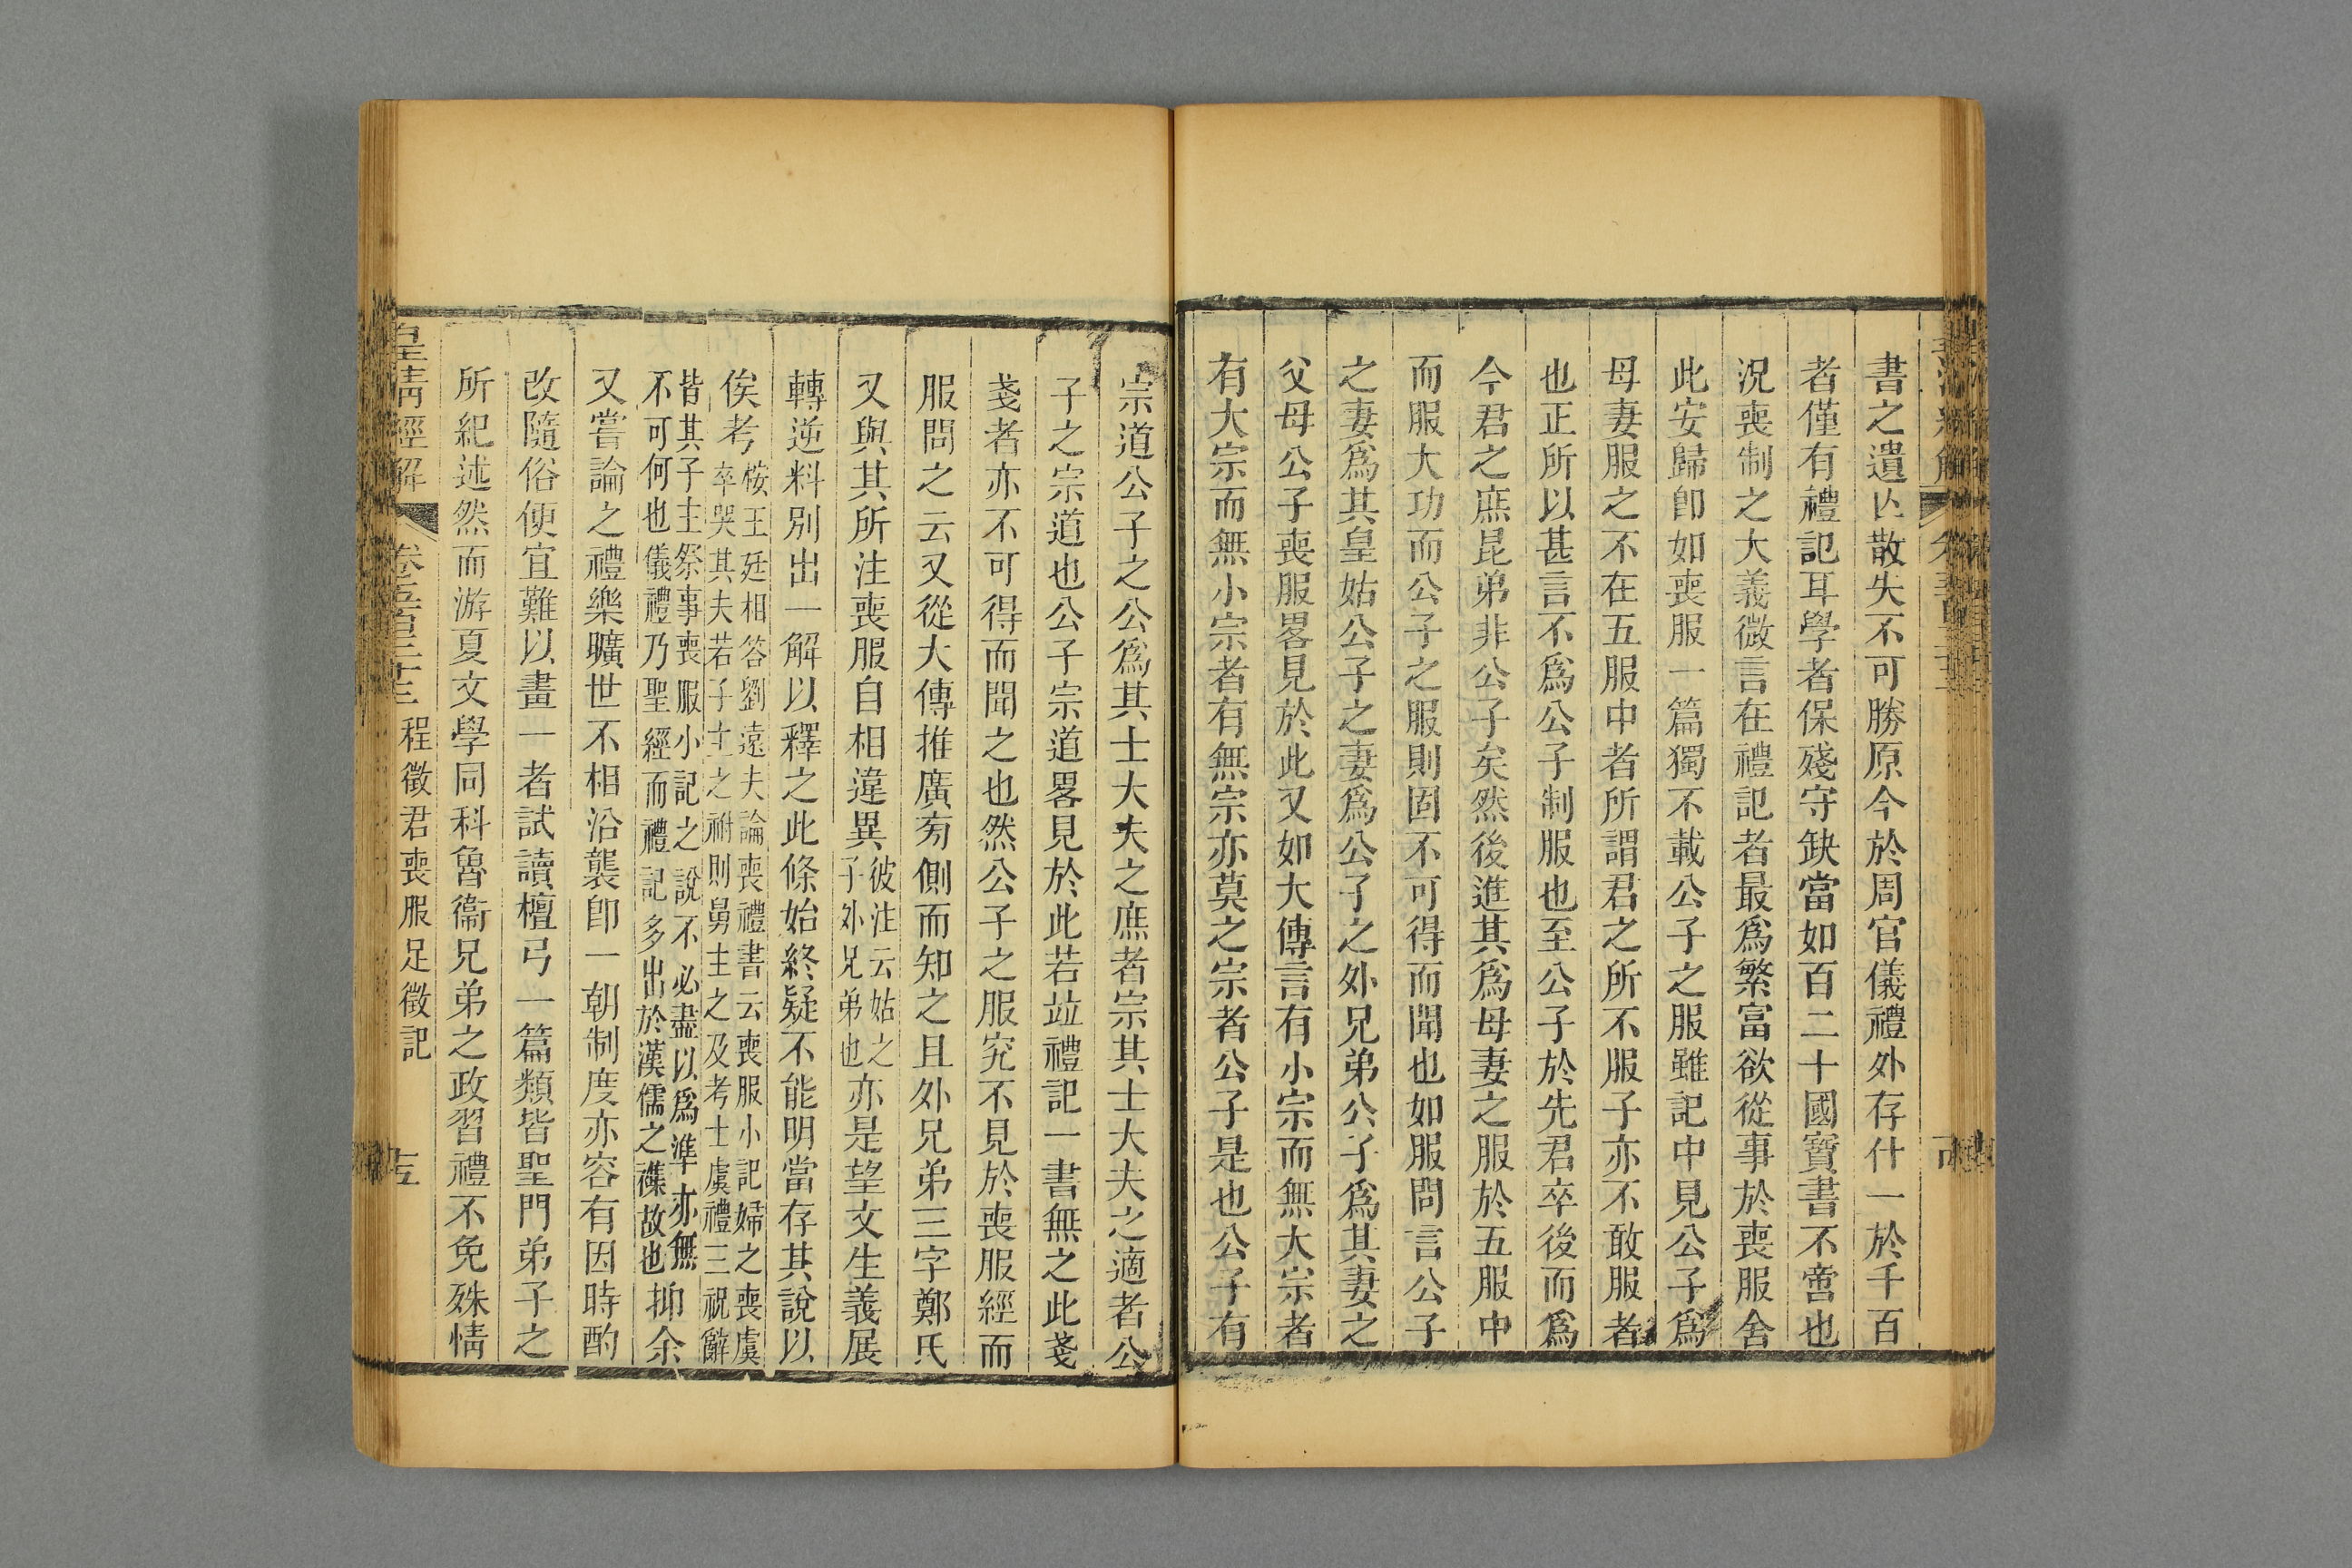 書之遺亾散失不可勝原今於周官儀禮外存什一於千百
者僅有禮記耳學者保殘守缺當如百二十國寶書不啻也
況喪制之大義微言在禮記者最爲繁富欲從事於喪服舍
此安歸卽如喪服一篇獨不載公子之服雖記中見公子爲
母妻服之不在五服中者所謂君之所不服子亦不敢服者
也正所以甚言不爲公子制服也至公子於先君卒後而爲
今君之庶昆弟非公子矣然後進其爲母妻之服於五服中
而服大功而公子之服則固不可得而聞也如服問言公子
之妻爲其皇姑公子之妻爲公子之外兄弟公子爲其妻之
父母公子喪服畧見於此又如大傳言有小宗而無大宗者
有大宗而無小宗者有無宗亦莫之宗者公子是也公子有
宗道公子之公爲其士大夫之庶者宗其士大夫之適者公
子之宗道也公子宗道畧見於此若竝禮記一書無之此戔
戔者亦不可得而聞之也然公子之服究不見於喪服經而
服問之云又從大傳推廣旁側而知之且外兄弟三字鄭氏
又與其所注喪服自相違異彼注云姑之子外兄弟也亦是望文生義展
轉逆料別出一解以釋之此條始終疑不能明當存其說以
俟考桉王廷相答劉遠夫論喪禮書云喪服小記婦之喪虞卒哭其夫若子主之祔則舅主之及考士虞禮三祝辭
皆其子主祭事喪服小記之說不必盡以爲準亦無不可何也儀禮乃聖經而禮記多出於漢儒之襍故也抑余
又嘗論之禮樂曠世不相沿襲卽一朝制度亦容有因時酌
改隨俗便宜難以畫一者試讀檀弓一篇類皆聖門弟子之
所紀述然而游夏文學同科魯衞兄弟之政習禮不免殊情
皇清經解 卷五百二十三 程徵君喪服足徵記 十五